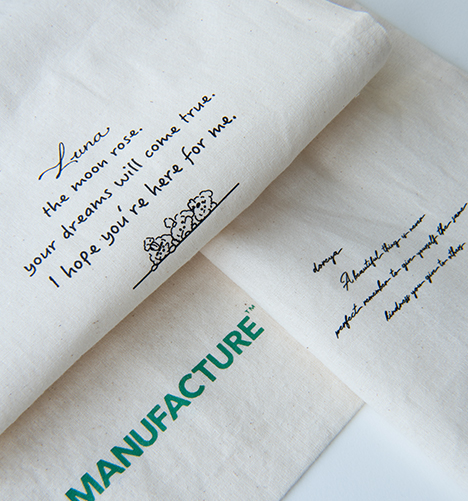 Luna
the moon rose.
your dreams will come true.
I hope you're here for me.
MANUFACTURE™
A beautiful thing is never
perfect remember to give yourself the same
kindness you give to others